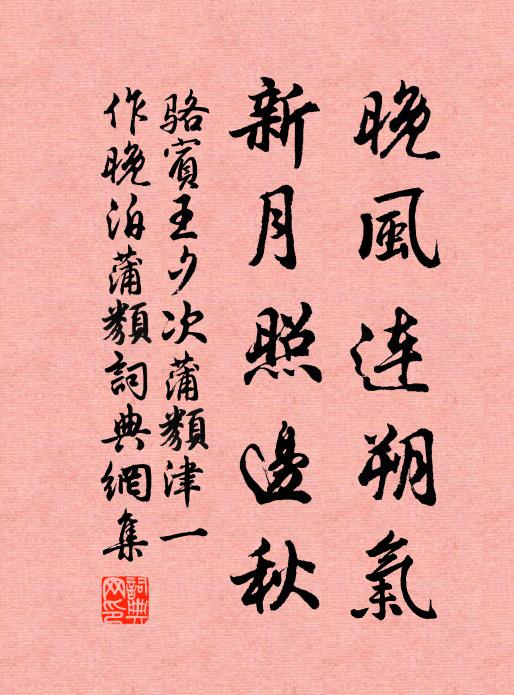 晚風连朔氣
新月照邊秋
骆賓王夕次蒲類津一
作晚泊蒲類詞典網集
詞典
网印